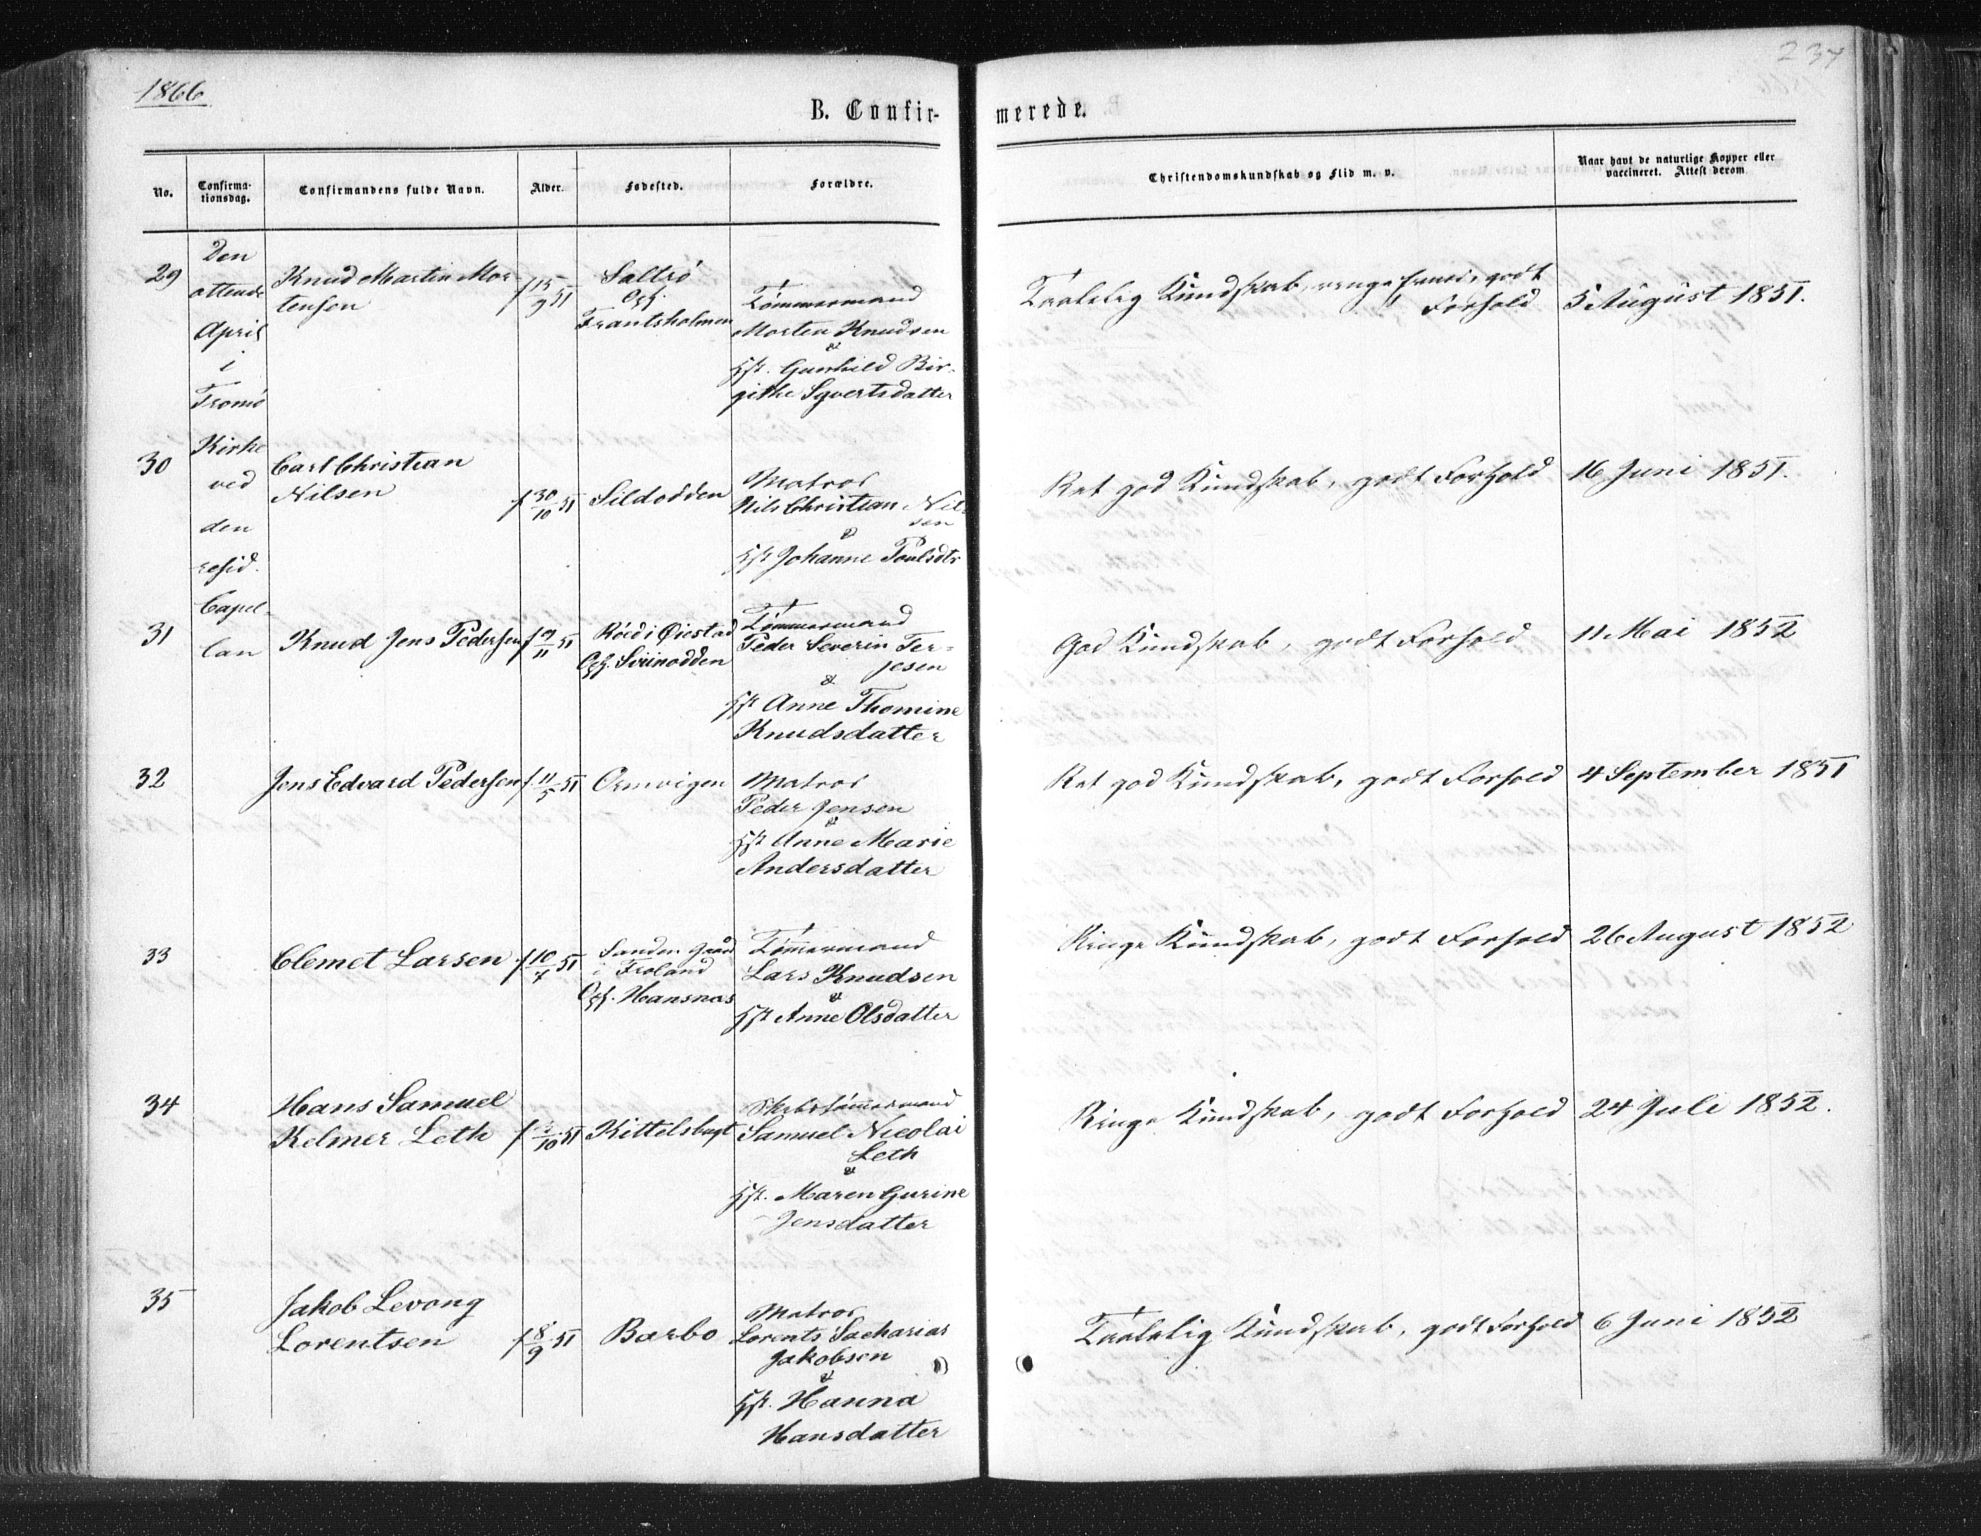 1866
237
B. Confir-
merede.
No.
Confirma-
tionsdag.
Confirmandens fulde Navn.
Alder.
Fødested.
Forældre.
Christendomskundskab og Flid m. v.
Naar havt de naturlige Kopper eller
vaccineret. Attest derom
Den
ottende
April
i
Tromö
Kirke
ved
den
resid.
Capel-
lan
29
Knud Martin Mor-
tensen
f 15/9 51
Saltrö
Frantsholmen
Tömmermand
Morten Knudsen
&
Gunhild Bir-
githe Syvertsdatter
Taalelig Kundskab, ringe, godt
Forhold
5 August 1851.
30
Carl Christian
Nilsen
f 30/10 51
Sildodden
Matros
Nils Christian Nil-
sen
&
Johanne Poulsdtr
Ret god Kundskab, godt Forhold
16 Juni 1851.
31
Knud Jens Pedersen
f 9/11 51
Röed i Öiestad
Tömmermand
Peder Severin Ter-
jesen
&
Anne Thomine
Knudsdatter
God Kundskab, godt Forhold
11 Mai 1852
32
Jens Edvard Pedersen
f 11/5 51
Ormvigen
Matros
Peder Jensen
&
Anne Marie
Andersdatter
Ret god Kundskab, godt Forhold
4 September 1851
33
Clemet Larsen
f 10/7 51
i Froland
Hansnæs
Tömmermand
Lars Knudsen
&
Anne Olsdatter
Ringe Kundskab, godt Forhold
26 August 1852
34
Hans Samuel
Kelmer Leth
Kittelsbugt
Skibstömmermand
Samuel Nicolai
Leth
&
Maren Gurine
Jensdatter
Ringe Kundskab, godt Forhold
24 Juli 1852.
35
Jakob Levong
Lorentsen
f 8/9 51
Barbo
Matros
Lorents Sacharias
Jakobsen
&
Hanna
Hansdatter
Taalelig Kundskab, godt Forhold
6 Juni 1852